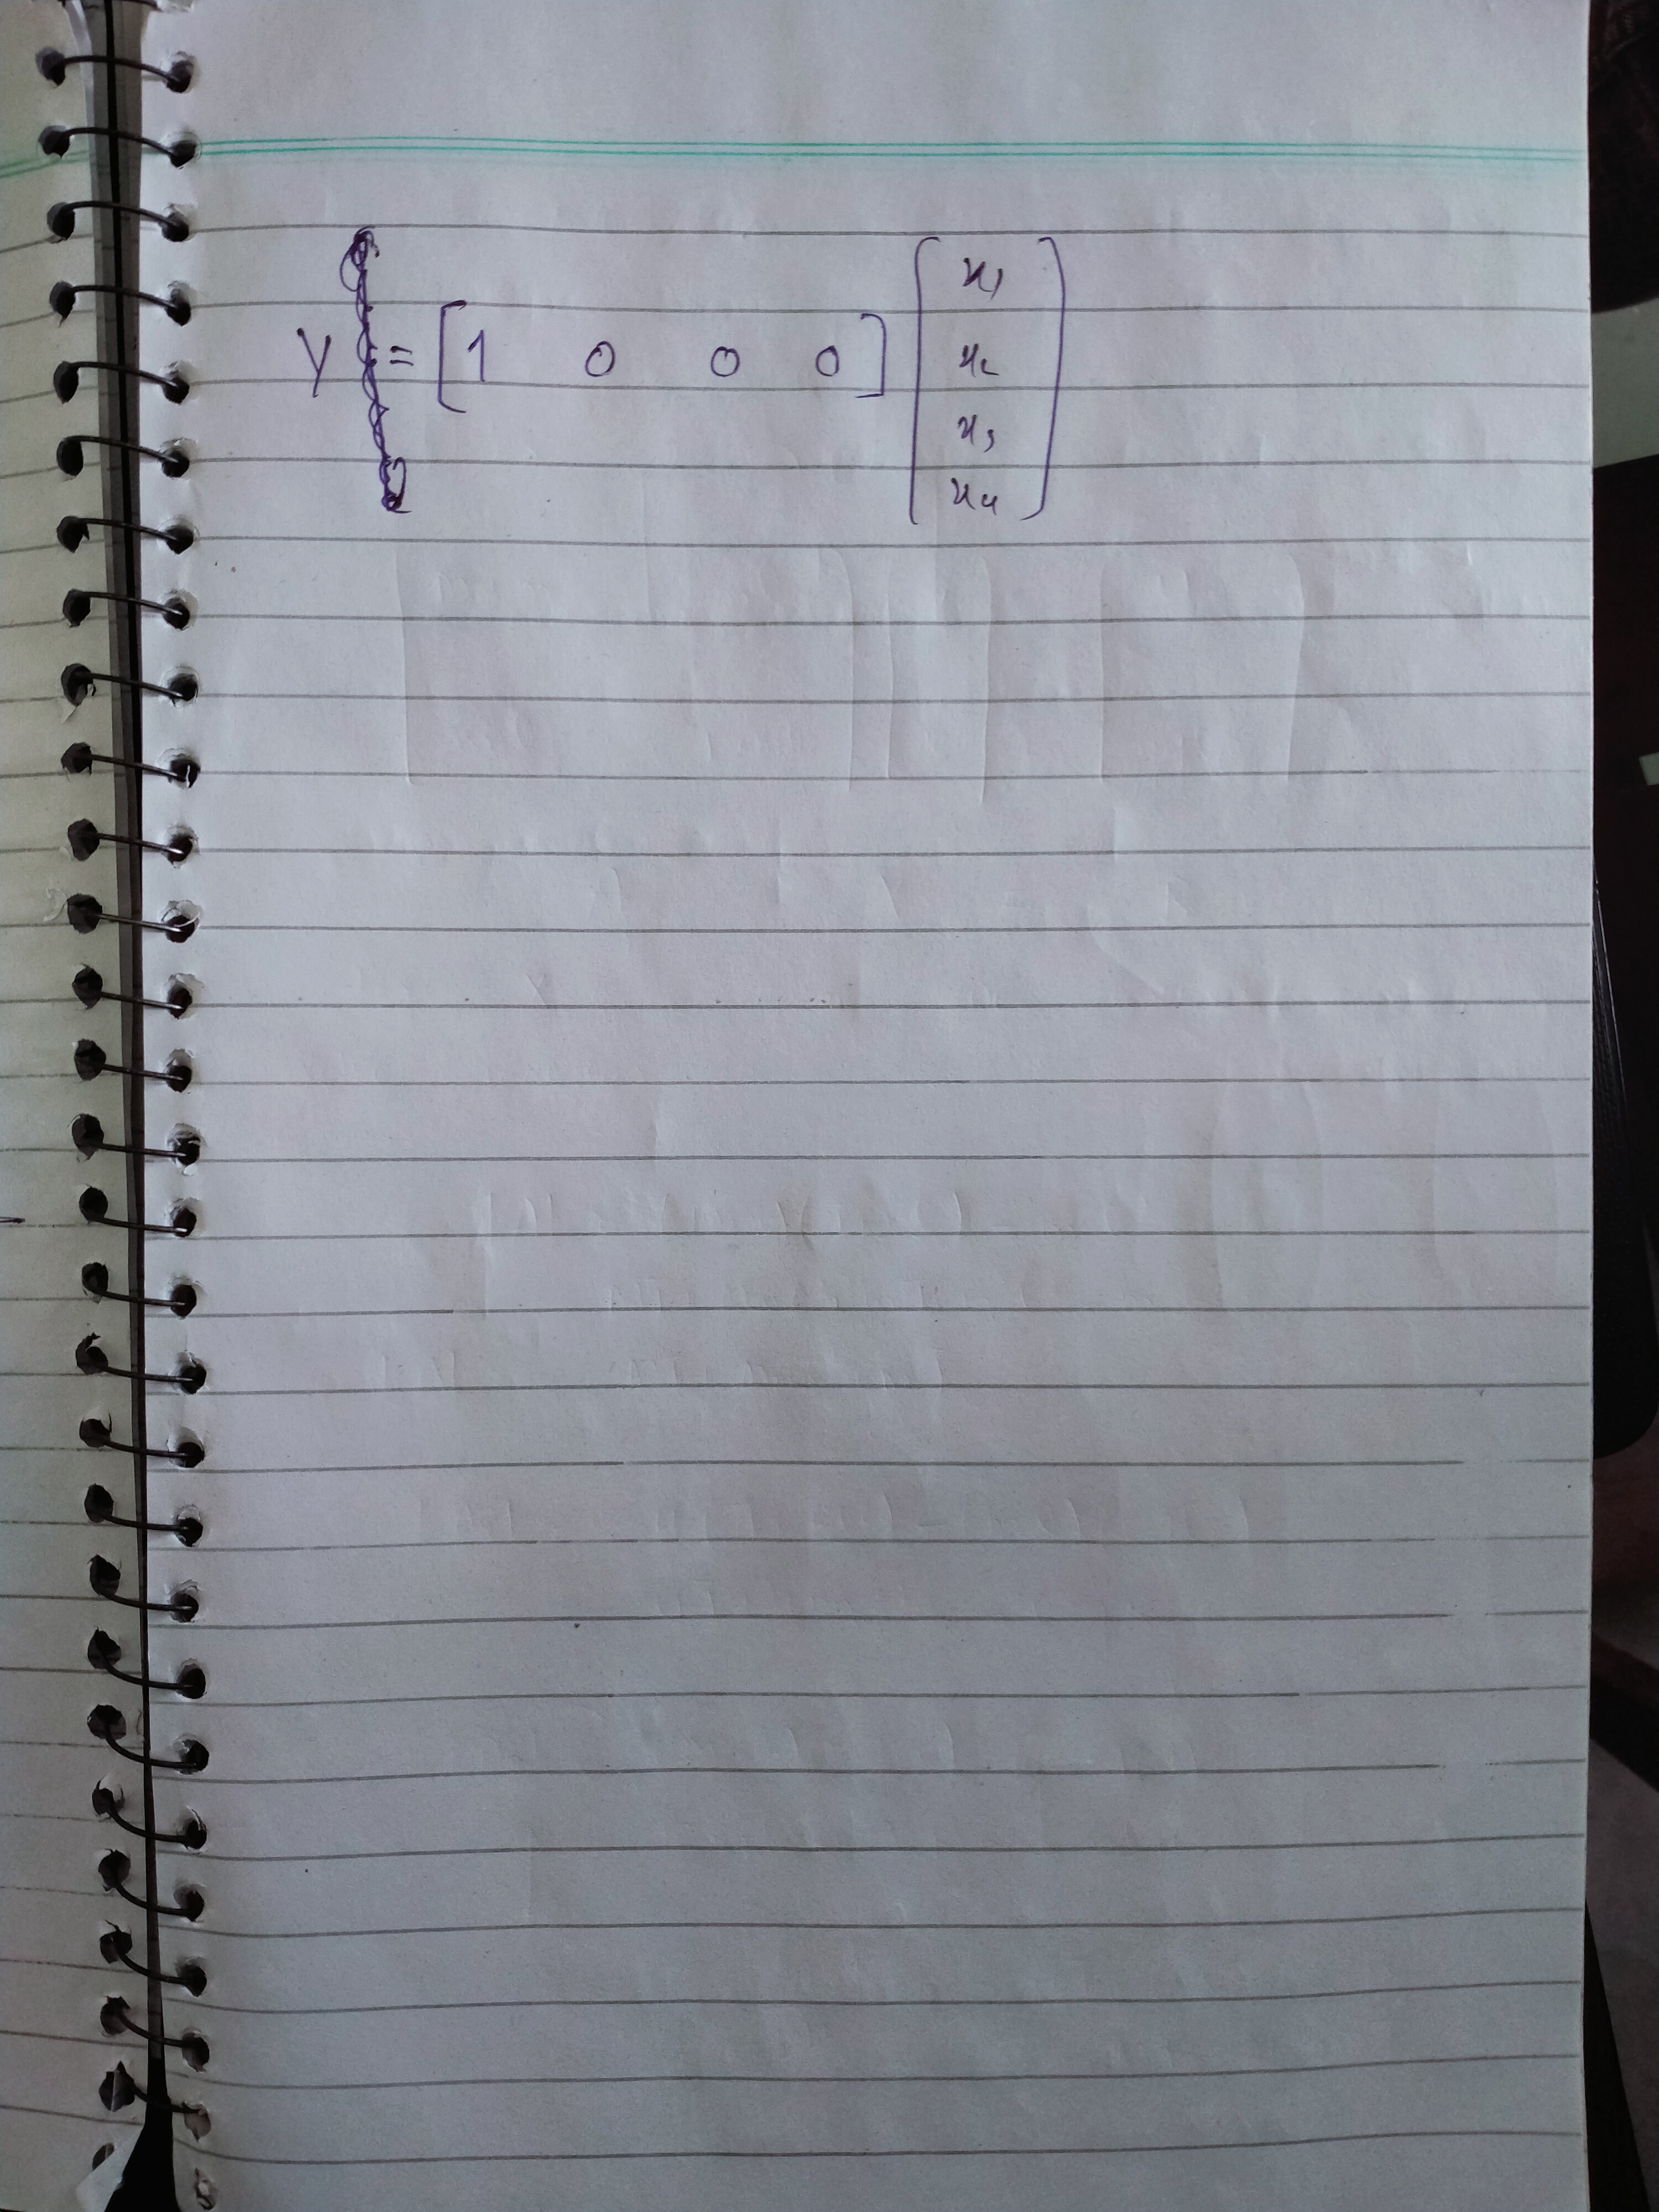 y = [1 0 0 0] [x₁
x₂
x₃
x₄]